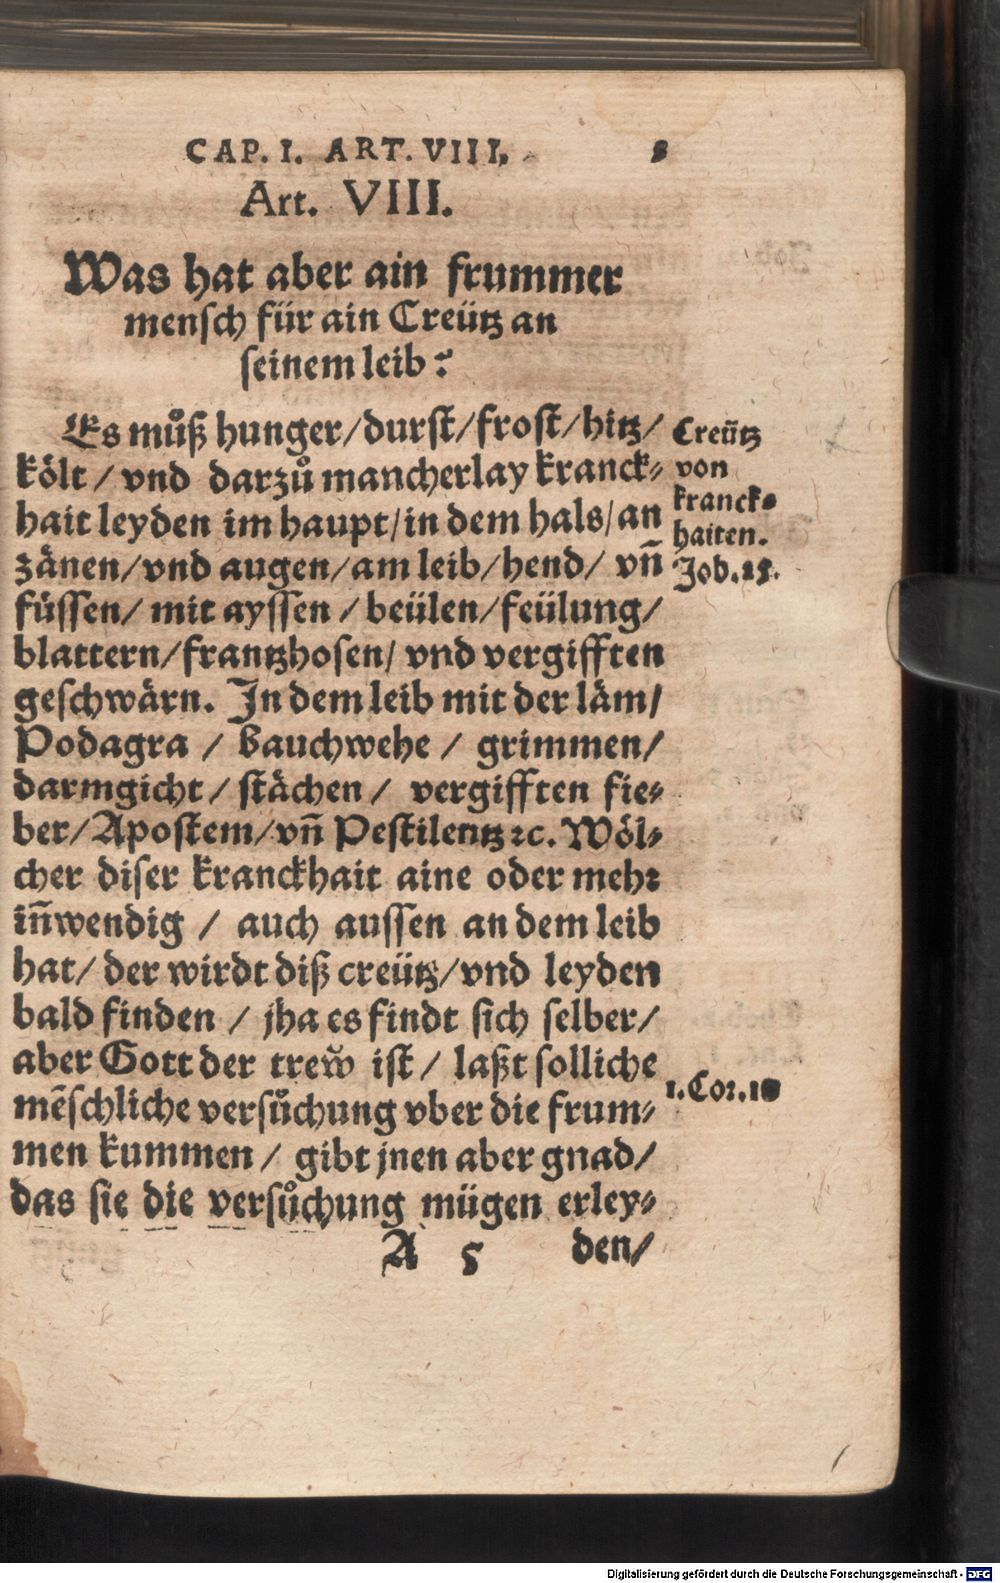 CAP. I. ART. VIII. 8
Art. VIII.
Was hat aber ain frummer
mensch für ain Creütz an
seinem leib?
Es můß hunger/durst/frost/hitz/
költ/ vnd darzů mancherlay kranck⸗
hait leyden im haupt/in dem hals/an
zänen/vnd augen/am leib/hend/ vñ
füssen/ mit ayssen/beülen/feülung/
blattern/frantzhosen/ vnd vergifften
geschwärn. In dem leib mit der läm/
Podagra / Bauchwehe / grimmen/
darmgicht / stächen / vergifften fie⸗
ber/Apostem/vñ Pestilentz ꝛc. Wöl⸗
cher diser kranckhait aine oder mehꝛ
iñwendig / auch aussen an dem leib
hat/ der wirdt diß creütz/vnd leyden
bald finden / jha es findt sich selber/
aber Gott der trew̆ ist / laßt solliche
mẽschliche versůchung vber die frum⸗
men kummen / gibt jnen aber gnad/
das sie die versůchung mügen erley⸗
A 5 den/
Creütz
von
kranck⸗
haiten.
Job.
1. Coꝛ. 10
Digitalisierung gefördert durch die Deutsche Forschungsgemeinschaft - DFG